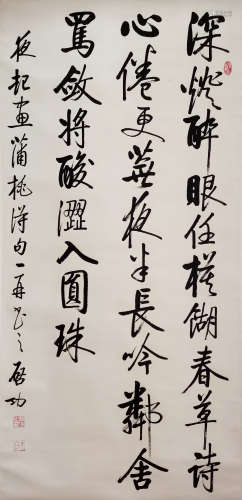 深燈醉眼任模餬春草詩
心倦更蕪夜半長吟鄰舍
罵斂將酸澀入圓珠
夜起畫蒲桃得句一再書之啓功